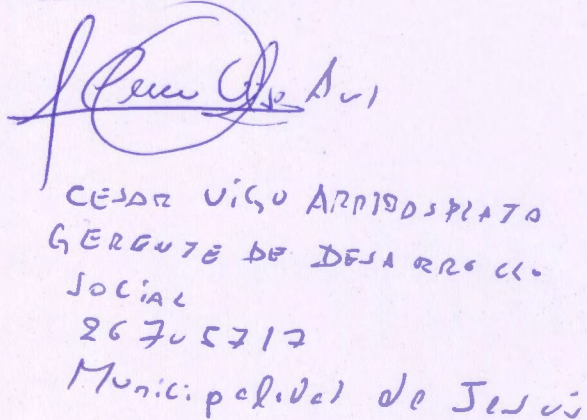 CESAR VIGO
GERENTE DE DESARROLLO
SOCIAL
26705717
Municipalidad de Jesús